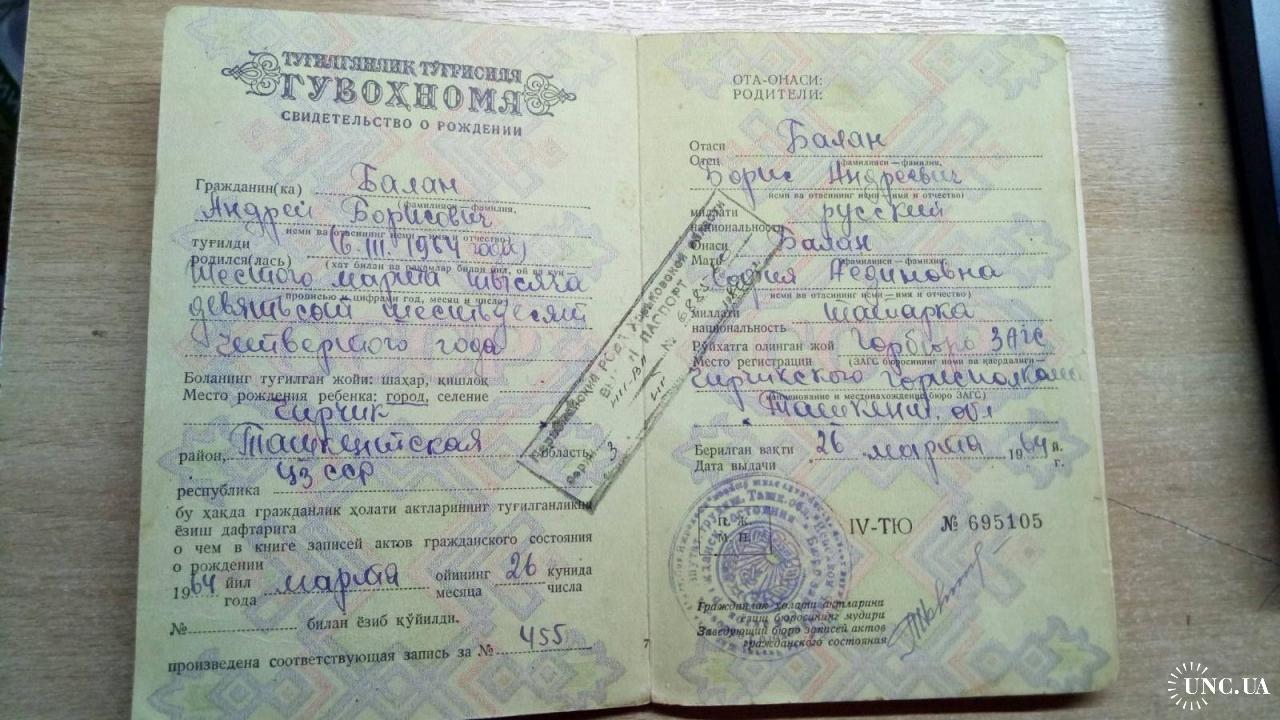 ТУҒИЛГАНЛИК ТЎҒРИСИДА
ГУВОҲНОМА
СВИДЕТЕЛЬСТВО О РОЖДЕНИИ
Гражданин(ка) Балан
фамилияси—фамилия,
Андрей Борисович
исми ва отасининг исми—имя и отчество)
туғилди (6.III.1964 года)
родился(лась) (хат билан ва рақамлар билан йил, ой ва кун—
Шестого марта тысяча
прописью и цифрами год, месяц и число)
девятьсот шестьдесят
четвертого года
Боланинг туғилган жойи: шаҳар, қишлоқ
Место рождения ребенка: город, селение
Чирчик
район, Ташкентская область,
УзССР
республика
бу ҳақда гражданлик ҳолати актларининг туғилганликни
ёзиш дафтарига
о чем в книге записей актов гражданского состояния
о рождении
1964 йил марта ойининг 26 кунида
года месяца числа
№ билан ёзиб қўйилди.
произведена соответствующая запись за № 455
ОТА-ОНАСИ:
РОДИТЕЛИ:
Отаси Балан
Отец фамилияси—фамилия,
Борис Андреевич
исми ва отасининг исми—имя и отчество)
миллати русский
национальность
Онаси Балан
Мать фамилияси—фамилия,
София
исми ва отасининг исми—имя и отчество)
миллати
национальность
Рўйхатга олинган жой Горбюро ЗАГС
Место регистрации (ЗАГС бюросининг номи ва қаердалиги—
Чирчикского горисполкома
наименование и местонахождение бюро ЗАГС)
Ташкент. обл
Берилган вақти 26 марта 1964 й.
Дата выдачи г.
ПАСПОРТ
№
П. Ж.
М. П.
IV-ТЮ № 695105
Гражданлик ҳолати актларини
ёзиш бюросининг мудири
Заведующий бюро записей актов
гражданского состояния
7
UNC.UA